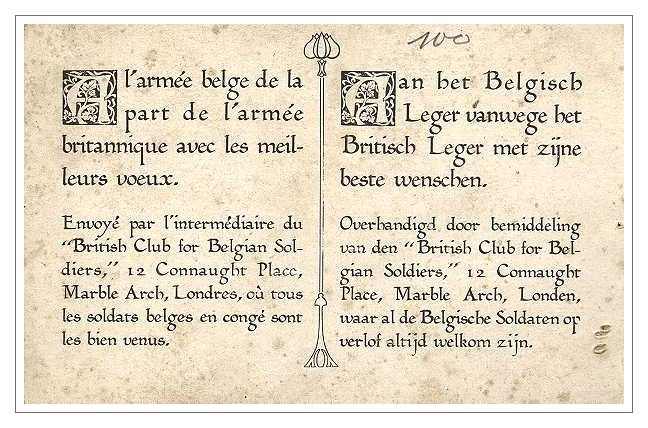 100
A l'armée belge de la
part de l'armée
britannique avec les meil-
leurs voeux.
Envoyé par l'intermédiaire du
"British Club for Belgian Sol-
diers," 12 Connaught Place,
Marble Arch, Londres, où tous
les soldats belges en congé sont
les bien venus.
Aan het Belgisch
Leger vanwege het
Britisch Leger met zijne
beste wenschen.
Overhandigd door bemiddeling
van den "British Club for Bel-
gian Soldiers," 12 Connaught
Place, Marble Arch, Londen,
waar al de Belgische Soldaten op
verlof altijd welkom zijn.